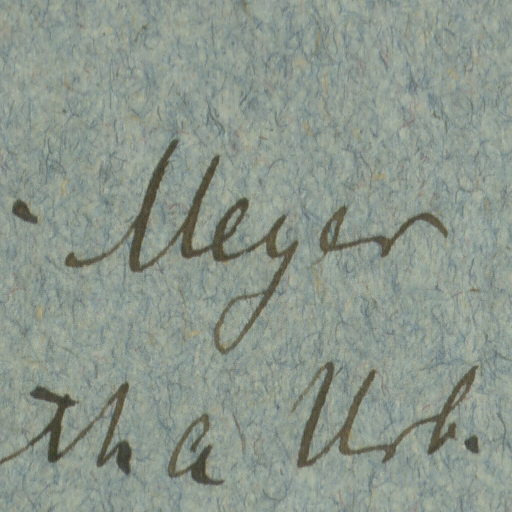 Meyer
th a Urb.